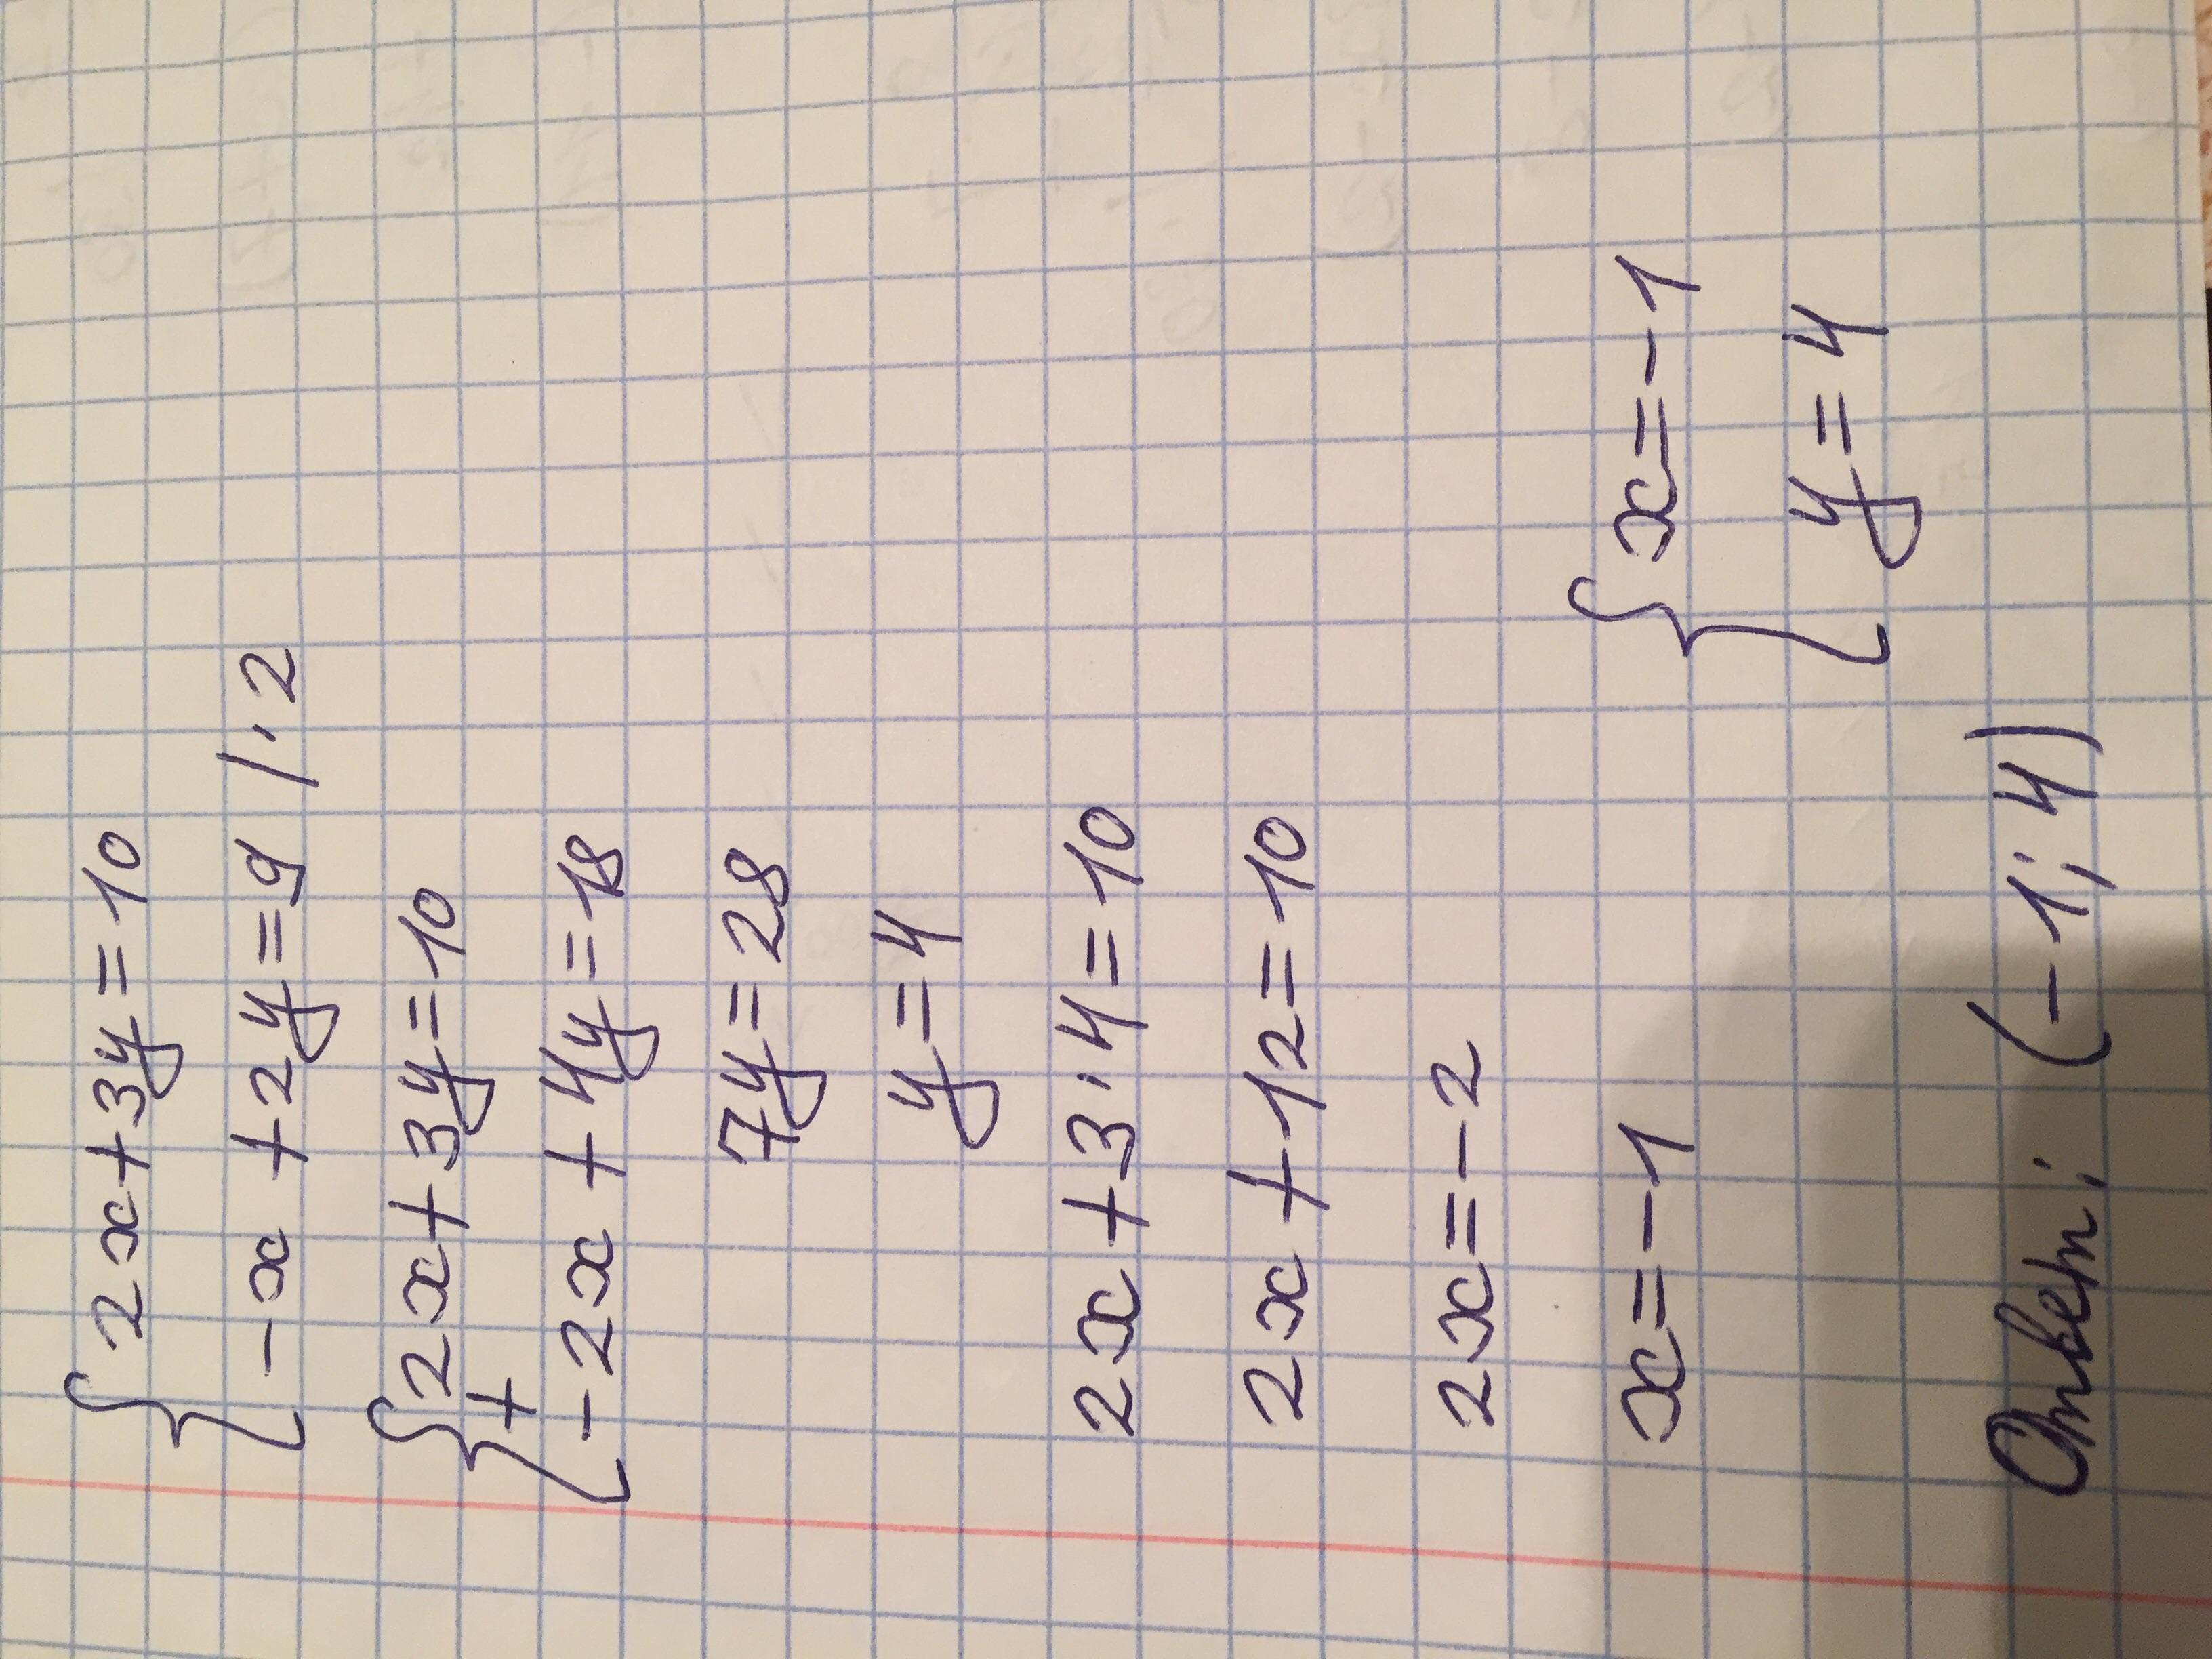 { 2x+3y=10
-x+2y=9 /·2
{ 2x+3y=10
+
-2x+4y=18
7y=28
y=4
2x+3·4=10
2x+12=10
2x=-2
x=-1
{ x=-1
y=4
Ответ: (-1; 4)